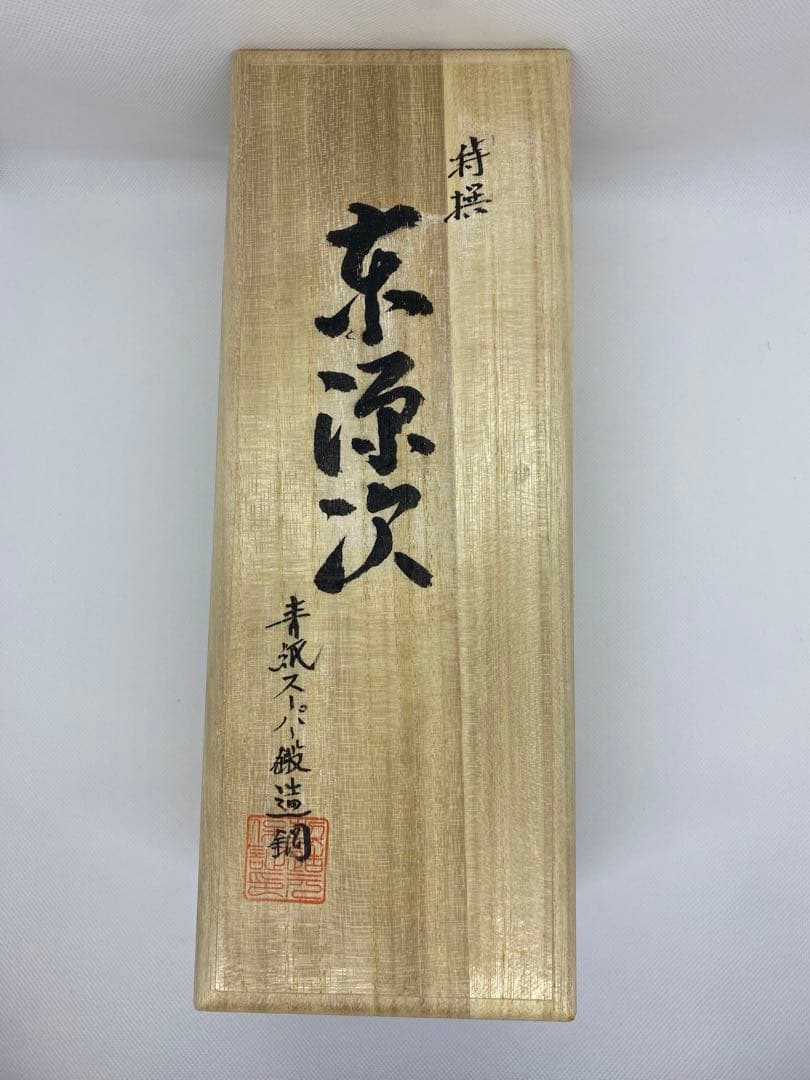 特撰
東源次
青紙スーパー鍛造鋼